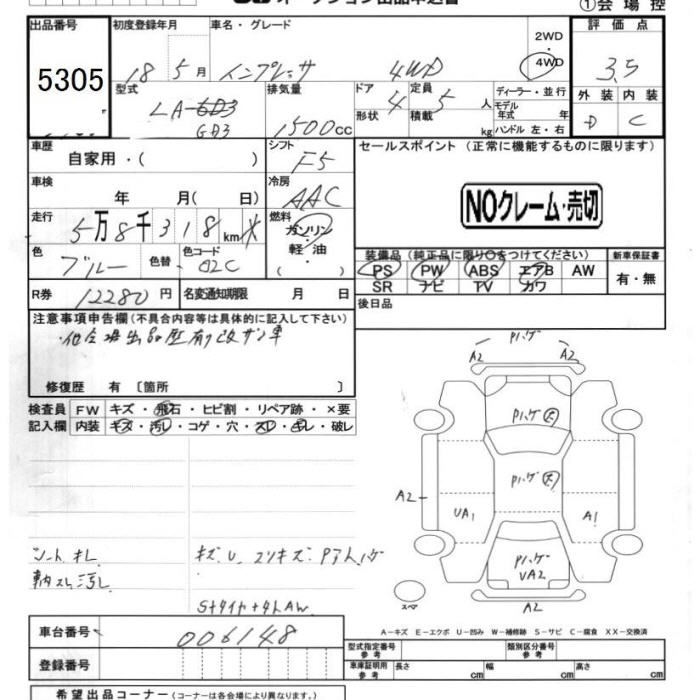 オークション出品申込書
①会場控
出品番号 初度登録年月 車名・グレード 2WD 評価点
5305 18 5月 インプレッサ 4WD 4WD 3.5
型式 排気量 ドア 定員 ディーラー・並行 外装 内装
LA-GD3 1500cc 4 5人 モデル年式 年 D C
GD3 形状 積載 kg ハンドル 左・右
車歴 シフト セールスポイント (正常に機能するものに限ります)
自家用・( ) F5
車検 冷房
年 月( 日) AAC
NOクレーム・売切
走行 燃料
5万8千318km ガソリン・軽油
色 色替 色コード 装備品(純正品に限り○をつけてください) 新車保証書
ブルー 02C PS PW ABS エアB AW 有・無
SR ナビ TV カワ
R券 12280円 名変通知期限 月 日 後日品
注意事項申告欄(不具合内容等は具体的に記入して下さい)
他会場出品歴有
修復歴 有 〔箇所 〕
検査員 FW キズ・飛石・ヒビ割・リペア跡・×要
記入欄 内装 キズ・汚レ・コゲ・穴・スレ・キレ・破レ
Pハゲ
A2 A2
Pハゲ
Pハゲ
A2
UA1 A1
Pハゲ
UA2
A2
スペア
シートキレ
汚レ
キズ U
A−キズ E−エクボ U−凹み W−補修跡 S−サビ C−腐食 XX−交換済
車台番号 006148
登録番号
型式指定番号 参考 類別区分番号 参考
車庫証明用 参考 長さ cm 幅 cm 高さ cm
希望出品コーナー(コーナーは各会場により異なります。)